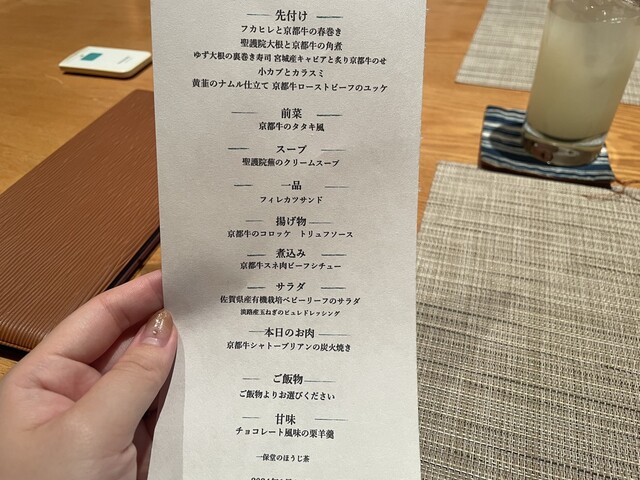 先付け
フカヒレと京都牛の春巻き
聖護院大根と京都牛の角煮
ゆず大根の裏巻き寿司 宮城産キャビアと炙り京都牛のせ
小カブとカラスミ
黄韮のナムル仕立て 京都牛ローストビーフのユッケ
前菜
京都牛のタタキ風
スープ
聖護院蕪のクリームスープ
一品
フィレカツサンド
揚げ物
京都牛のコロッケ トリュフソース
煮込み
京都牛スネ肉ビーフシチュー
サラダ
佐賀県産有機栽培ベビーリーフのサラダ
淡路産玉ねぎのピュレドレッシング
本日のお肉
京都牛シャトーブリアンの炭火焼き
ご飯物
ご飯物よりお選びください
甘味
チョコレート風味の栗羊羹
一保堂のほうじ茶